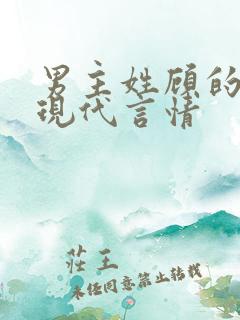 男主姓顾的
现代言情
莊王
未经同意禁止转载